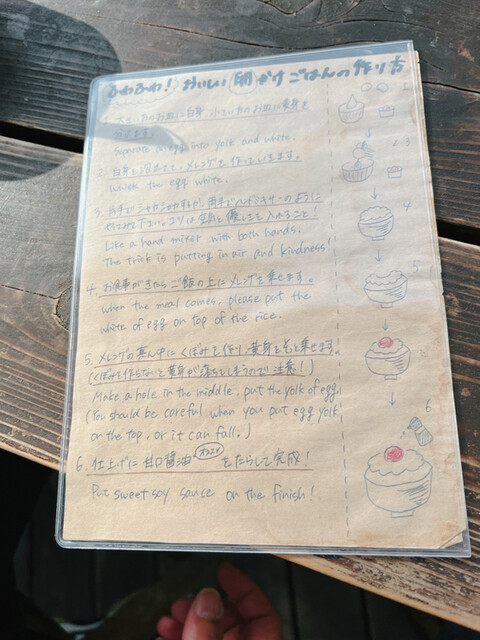 ふわふわ！おいしい卵かけごはんの作り方
1. 大きい方のお皿に白身、小さい方のお皿に黄身を
分けます。
Separate egg into yolk and white.
2. 白身を泡立てて、メレンゲを作っていきます。
Whisk the egg white.
3. 片手でシャカシャカもよし、両手でハンドミキサーのように
するもよし。コツは空気と優しさを入れること！
Like a hand mixer with both hands.
The trick is putting in air and kindness!
4. お食事がきたら ご飯の上にメレンゲを乗せます。
When the meal comes, please put the
white of egg on top of the rice.
5. メレンゲの真ん中にくぼみを作り、黄身をそっと乗せます。
(くぼみを作らないと黄身が落ちてしまうので注意！)
Make a hole in the middle, put the yolk of egg.
(You should be careful when you put egg yolk
on the top, or it can fall.)
6. 仕上げに甘口醤油 オススメ をたらして完成！
Put sweet soy sauce on the finish!
2-3
4
5
6